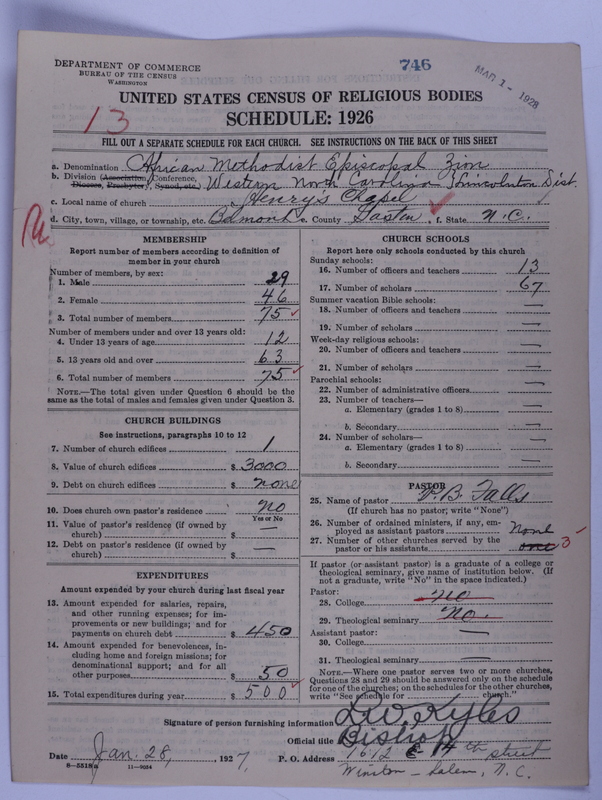 DEPARTMENT OF COMMERCE
BUREAU OF THE CENSUS
WASHINGTON
746
MAR 1 - 1928
UNITED STATES CENSUS OF RELIGIOUS BODIES
13
SCHEDULE: 1926
FILL OUT A SEPARATE SCHEDULE FOR EACH CHURCH. SEE INSTRUCTIONS ON THE BACK OF THIS SHEET
a. Denomination African Methodist Episcopal Zion
b. Division (Association, Conference, Diocese, Presbytery, Synod, etc.) Western North Carolina (Lincolnton Dist.
c. Local name of church Henrys Chapel
d. City, town, village, or township, etc. Belmont e. County Gaston, f. State N.C.
MEMBERSHIP
Report number of members according to definition of
member in your church
Number of members, by sex:
1. Male 29
2. Female 46
3. Total number of members 75
Number of members under and over 13 years old:
4. Under 13 years of age 12
5. 13 years old and over 63
6. Total number of members 75
NOTE.—The total given under Question 6 should be the
same as the total of males and females given under Question 3.
CHURCH BUILDINGS
See instructions, paragraphs 10 to 12
7. Number of church edifices 1
8. Value of church edifices $ 3000
9. Debt on church edifices $ none
10. Does church own pastor's residence no
Yes or No
11. Value of pastor's residence (if owned by
church) $ —
12. Debt on pastor's residence (if owned by
church) $ —
EXPENDITURES
Amount expended by your church during last fiscal year
13. Amount expended for salaries, repairs,
and other running expenses; for im-
provements or new buildings; and for
payments on church debt $ 450
14. Amount expended for benevolences, in-
cluding home and foreign missions; for
denominational support; and for all
other purposes $ 50
15. Total expenditures during year $ 500
CHURCH SCHOOLS
Report here only schools conducted by this church
Sunday schools:
16. Number of officers and teachers 13
17. Number of scholars 67
Summer vacation Bible schools:
18. Number of officers and teachers —
19. Number of scholars —
Week-day religious schools:
20. Number of officers and teachers —
21. Number of scholars —
Parochial schools:
22. Number of administrative officers —
23. Number of teachers—
a. Elementary (grades 1 to 8) —
b. Secondary —
24. Number of scholars—
a. Elementary (grades 1 to 8) —
b. Secondary —
PASTOR
25. Name of pastor B. Falls
(If church has no pastor; write "None")
26. Number of ordained ministers, if any, em-
ployed as assistant pastors None
27. Number of other churches served by the
pastor or his assistants one 3
If pastor (or assistant pastor) is a graduate of a college or
theological seminary, give name of institution below. (If
not a graduate, write "No" in the space indicated.)
Pastor:
28. College no
29. Theological seminary No.
Assistant pastor:
30. College —
31. Theological seminary —
NOTE.—Where one pastor serves two or more churches,
Questions 28 and 29 should be answered only on the schedule
for one of the churches; on the schedules for the other churches,
write "See schedule for church."
Signature of person furnishing information L. W. Kyles
Official title Bishop
Date Jan. 28, 1927. P. O. Address 1612 E 14th street
8-5518a 11-9034
Winston-Salem, N.C.